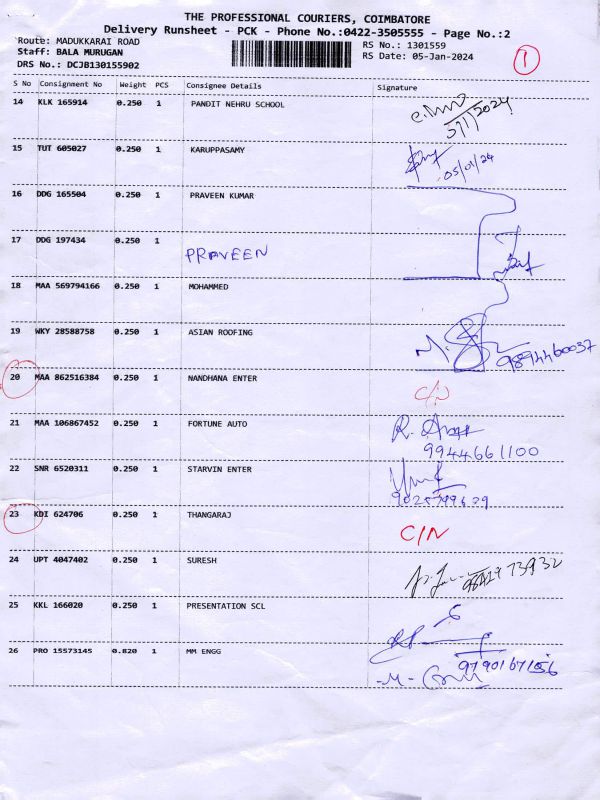 THE PROFESSIONAL COURIERS, COIMBATORE
Delivery Runsheet - PCK - Phone No.:0422-3505555 - Page No.:2
Route: MADUKKARAI ROAD RS No.: 1301559
Staff: BALA MURUGAN RS Date: 05-Jan-2024 1
DRS No.: DCJB130155902
S No Consignment No Weight PCS Consignee Details Signature
14 KLK 165914 0.250 1 PANDIT NEHRU SCHOOL 5/1/2024
15 TUT 605027 0.250 1 KARUPPASAMY 05/01/24
16 DDG 165504 0.250 1 PRAVEEN KUMAR
17 DDG 197434 0.250 1 PRAVEEN
18 MAA 569794166 0.250 1 MOHAMMED
19 WKY 28588758 0.250 1 ASIAN ROOFING 9894460037
20 MAA 862516384 0.250 1 NANDHANA ENTER C/N
21 MAA 106867452 0.250 1 FORTUNE AUTO 9944661100
22 SNR 6520311 0.250 1 STARVIN ENTER
23 KDI 624706 0.250 1 THANGARAJ C/N
24 UPT 4047402 0.250 1 SURESH
25 KKL 166020 0.250 1 PRESENTATION SCL
26 PRO 15573145 0.820 1 MM ENGG 9790167156